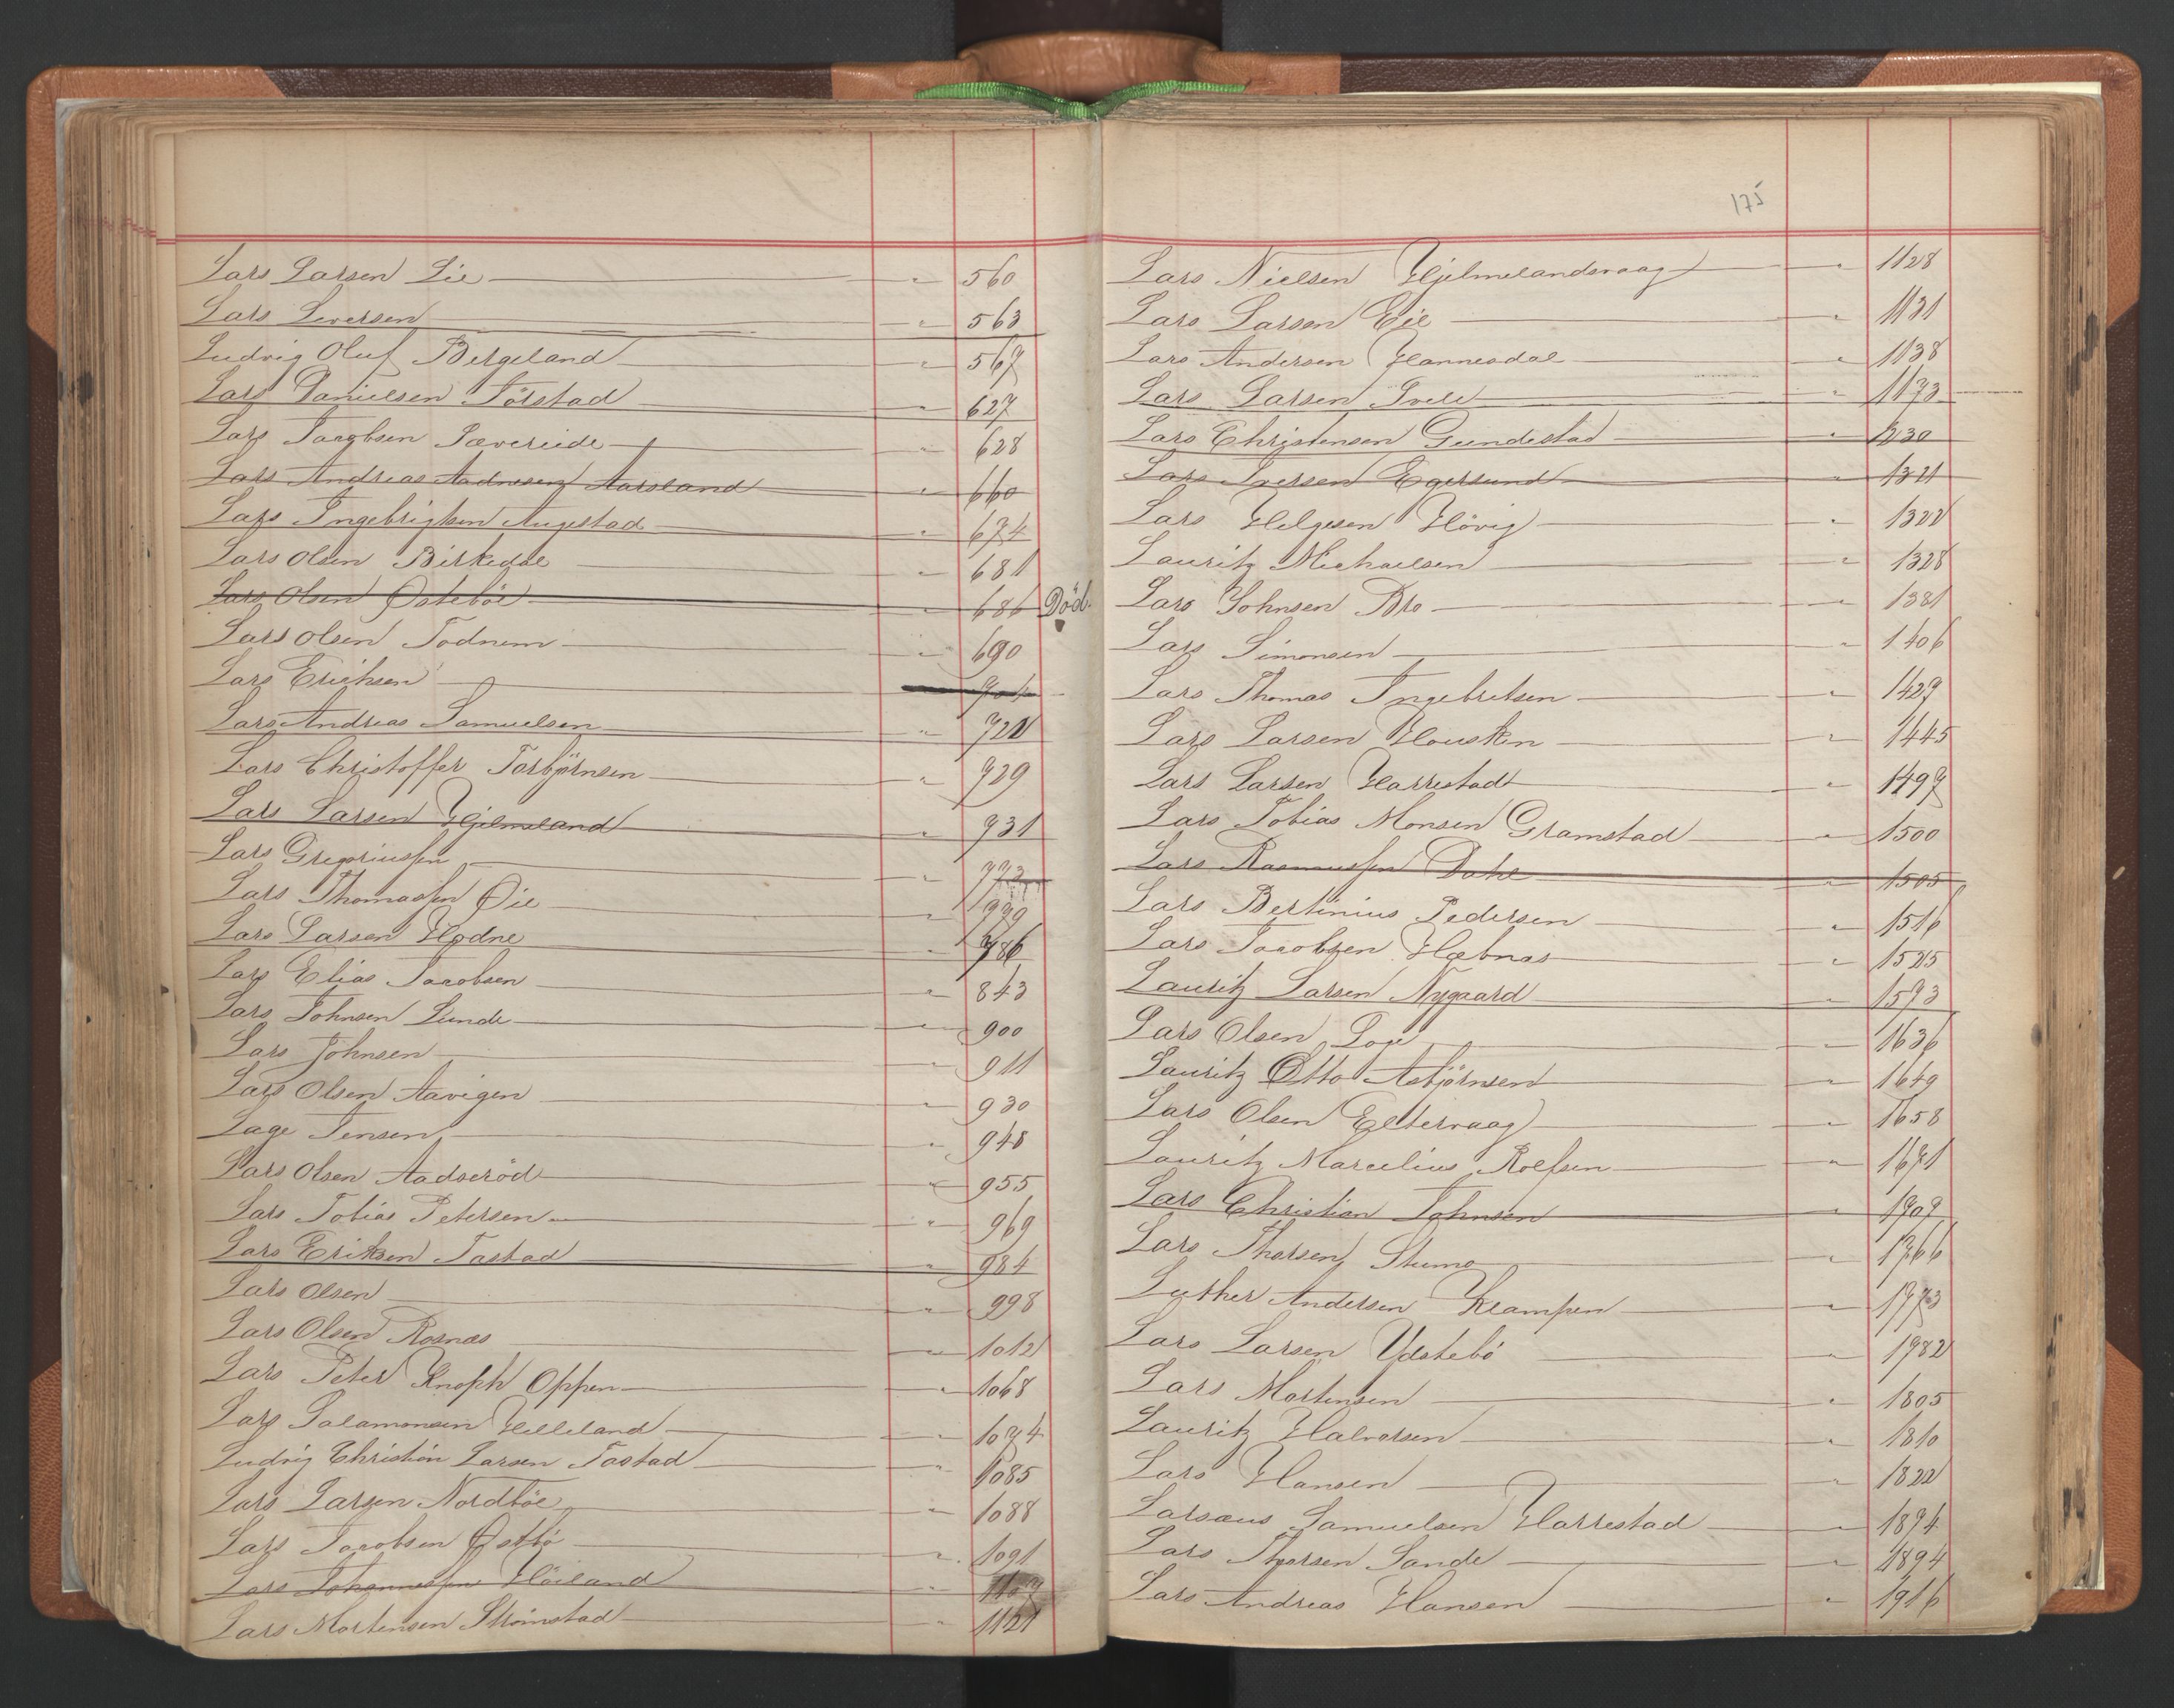 Lars Larsen Lie " 560
Lars Siversen " 563
Ludvig Oluf Bergeland " 567
Lars Danielsen Törstad " 627
Lars Jacobsen Sævereide " 628
Lars Andreas Aadnesen Aarsland " 660
Lars Ingebrigtsen Augestad " 674
Lars Olsen Birkedal " 681
Lars Olsen Østeböe " 686 Död
Lars Olsen Todnem " 690
Lars Erichsen 704
Lars Andreas Samuelsen " 721
Lars Christoffer Torbjörnsen " 729
Lars Larsen Hjelmeland " 731
Lars Gregoriussen " 773
Lars Thomassen Öie " 779
Lars Larsen Hodne " 786
Lars Elias Jacobsen " 843
Lars Johnsen Lunde " 900
Lars Johnsen " 911
Lars Olsen Aavigen " 930
Lage Jensen " 948
Lars Olsen Aadseröd " 955
Lars Tobias Petersen " 969
Lars Eriksen Tastad " 984
Lars Olsen " 998
Lars Olsen Rosnæs " 1012
Lars Peter Knoph Oppen " 1068
Lars Salamonsen Helleland " 1074
Ludvig Christian Larsen Tastad " 1085
Lars Larsen Nordböe " 1088
Lars Jacobsen Østbö " 1091
Lars Johannessen Höiland " 1107
Lars Mortensen Strömstad " 1121
175
Lars Nielsen Hjelmelandsvaag " 1128
Lars Larsen Eie " 1131
Lars Andersen Hannesdal " 1138
Lars Larsen " 1173
Lars Christensen Gundestad " 1230
Lars Iversen Egersund " 1321
Lars Helgesen Hövig " 1322
Lauritz Michaelsen " 1328
Lars Johnsen Bro " 1381
Lars Simonsen " 1406
Lars Thomas Ingebretsen " 1427
Lars Larsen Housken " 1445
Lars Larsen Harrestad " 1497
Lars Tobias Monsen Gramstad " 1500
Lars Rasmussen Dahl " 1505
Lars Bertinius Pedersen " 1516
Lars Jacobsen Hæbnæs " 1525
Lauritz Larsen Nygaard " 1573
Lars Olsen 1636
Lauritz Otto Asbjörnsen " 1649
Lars Olsen Eltervaag " 1658
Lauritz Marcelius Rolfsen " 1671
Lars Christian Johnsen " 1707
Lars Thorsen Stumo " 1766
Luther Andersen Klampen " 1773
Lars Larsen Ydstebö " 1782
Lars Mortensen " 1805
Lauritz Halvorsen " 1810
Lars Hansen " 1822
Larsæus Samuelsen Harrestad " 1874
Lars Thorsen Sande " 1894
Lars Andreas Hansen " 1916